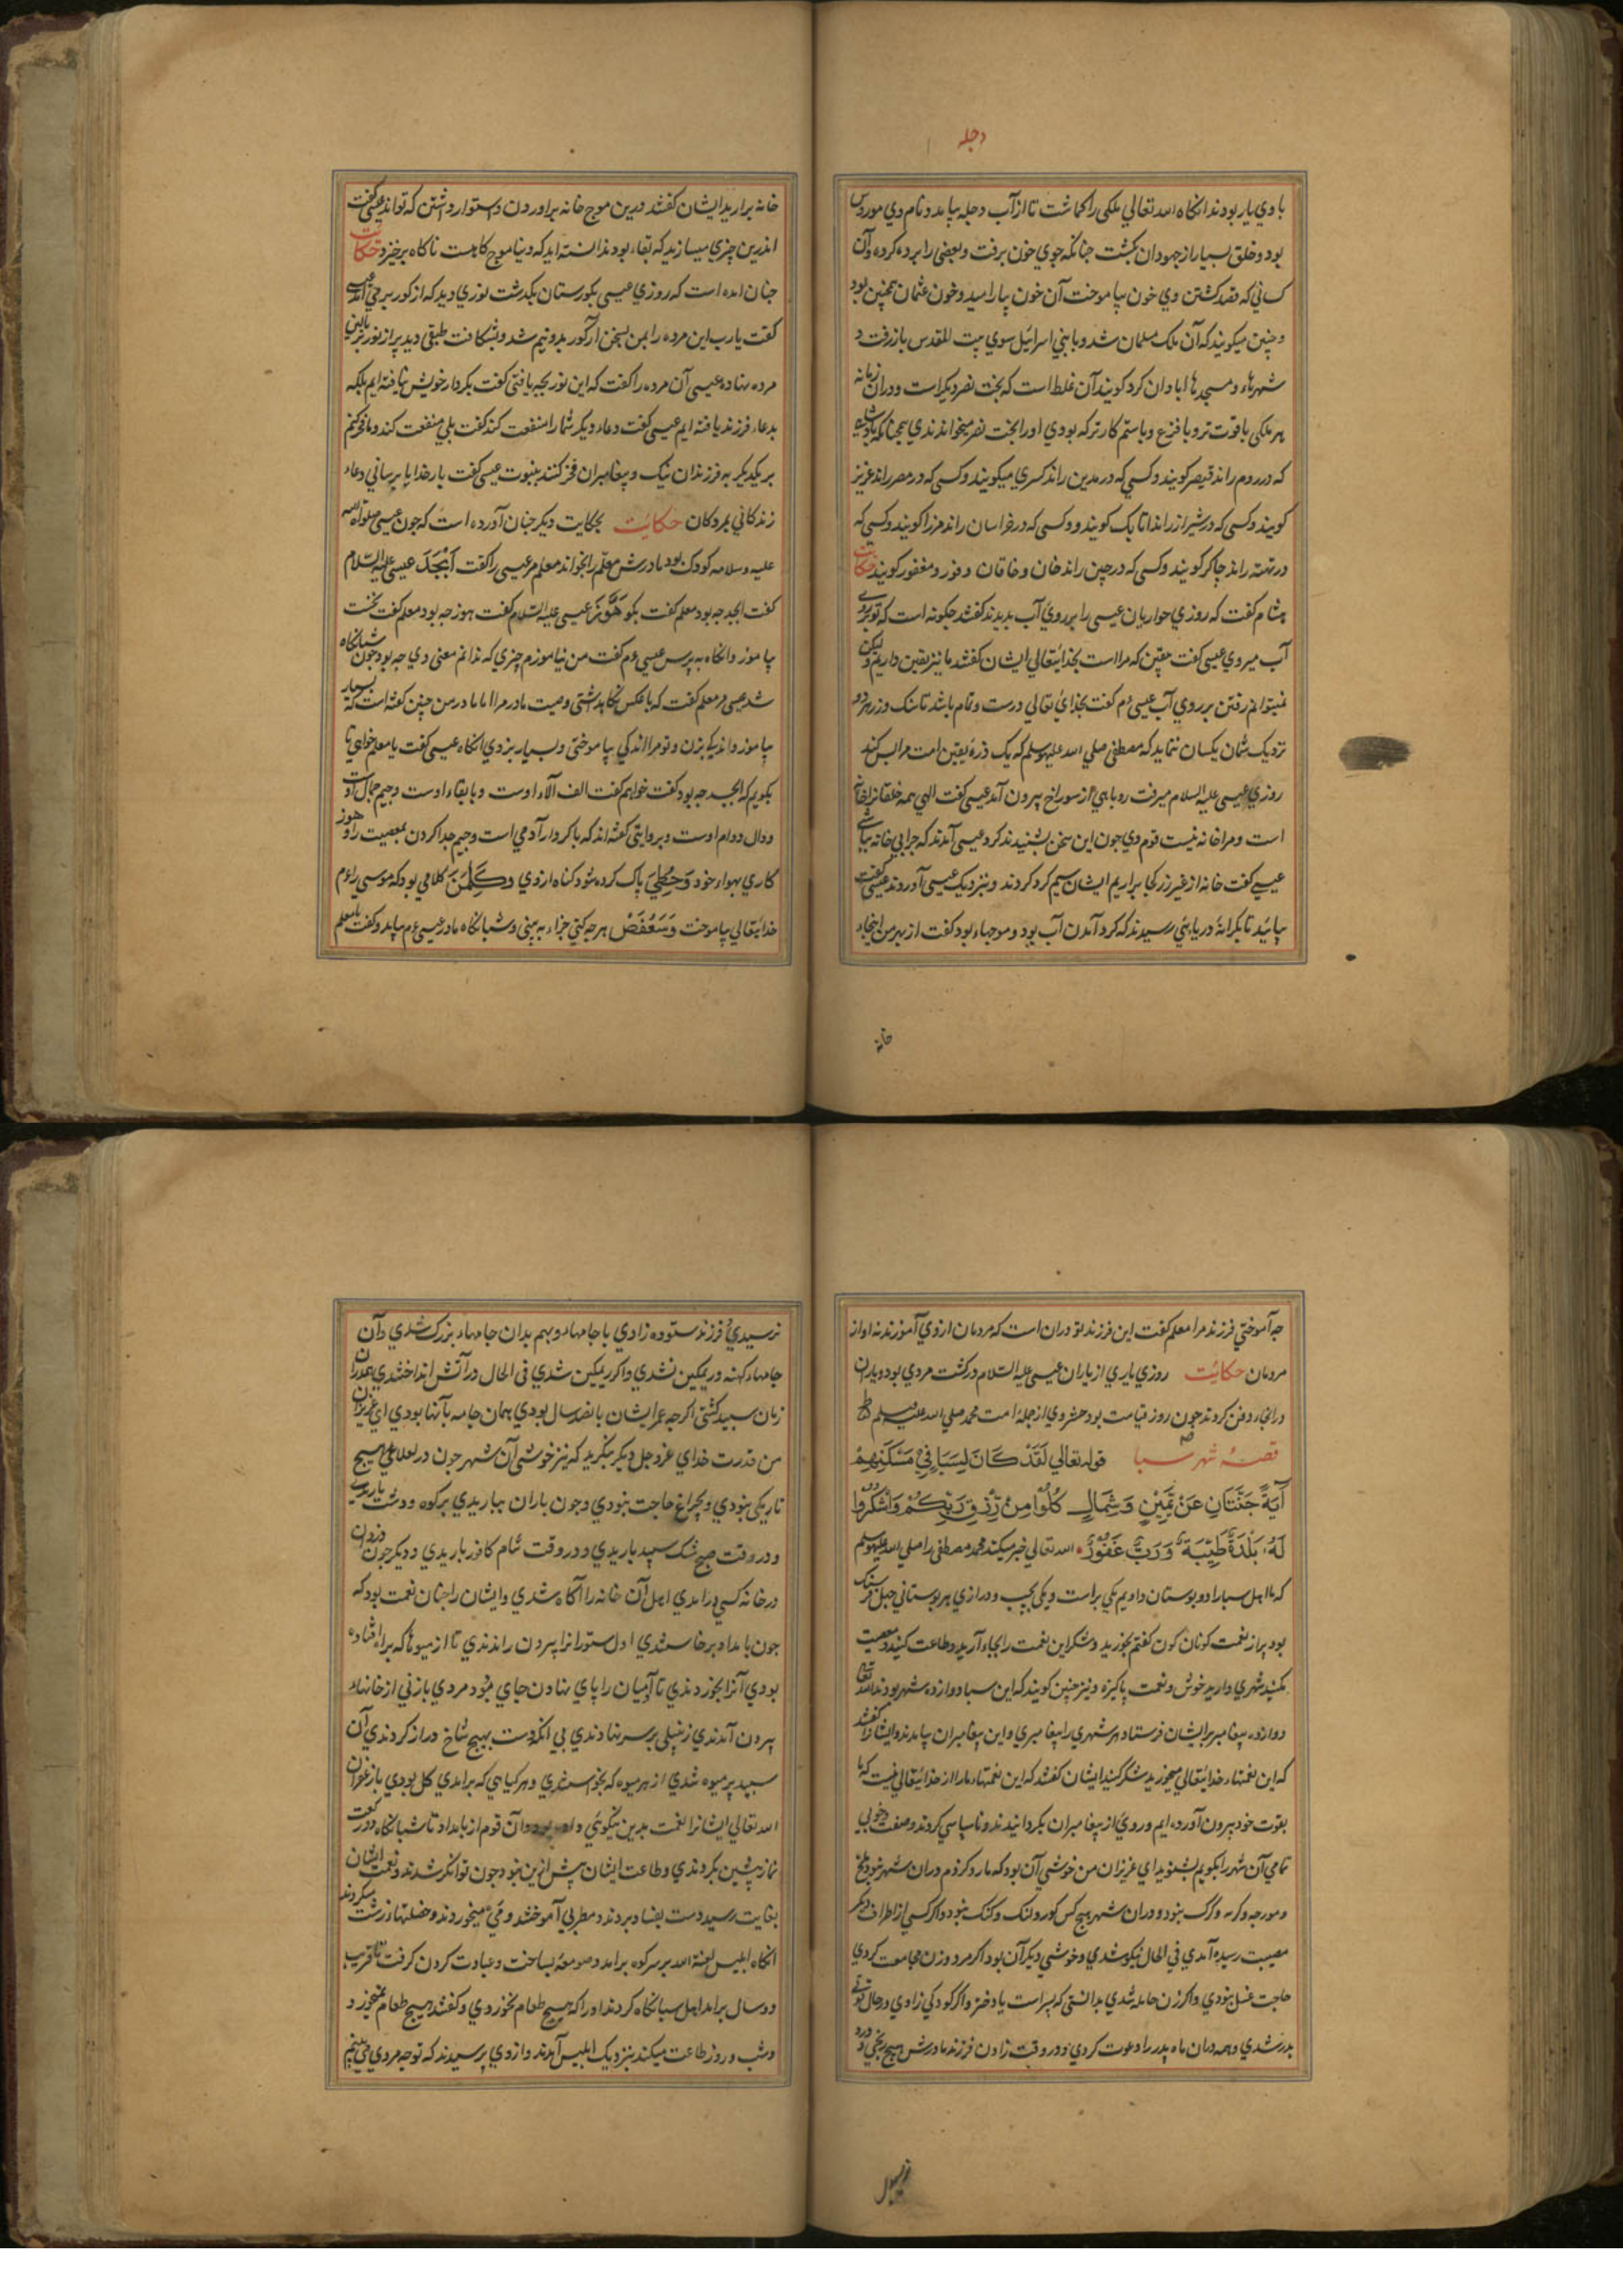 دجله
با وي يار بودند انكاه الله تعالي ملكي را كماشت تا از آب دجله بيامد و نام وي موردس
بود و خلق بسيار از جهودان بكشت جنانكه جوي خون برفت و بعضي را برده كرد و آن
كساني كه قصد كشتن وي خون بياموخت آن خون بياراميد و خون عثمان همچنين بود
و چنين ميكويند كه آن ملك مسلمان شد و با بني اسرائيل سوي بيت المقدس بازرفت و
شهرهاء و مسجدها ابادان كرد كويند آن غلط است كه بخت نصر ديكر است و دران زمانه
هر ملكي باقوت تر و بافزع و باستم كارتر كه بودي اورا بخت نصر ميخواندندي همچنانكه بادشاه
كه در روم راند قيصر كويند و كسي كه در مدين راند كسري ميكويند و كسي كه در مصر راند عزيز
كويند و كسي كه در شيراز راند اتابك كويند و كسي كه در خراسان راند مرزا كويند و كسي كه
در تهته راند جاكر كويند و كسي كه در چين راند خان و خاقان و فور و مغفور كويند حكايت
هشام كفت كه روزي حواريان عيسي را بر روي آب بديدند كفتند چكونه است كه تو بر روي
آب ميروي عيسي كفت يقين كه مرا است بخدايتعالي ايشان كفتند ما نيز يقين داريم وليكن
نميتوانم رفتن بر روي آب عيسي ءم كفت بخداي تعالي درست و تمام باشد تا سنك و زر هر دو
نزديك شمان يكسان ننمايد كه مصطفي صلي الله عليه وسلم كه يك ذره يقين امت مرا بس كند
روزي عيسي عليه السلام ميرفت روباهي از سوراخ بيرون آمد عيسي كفت الهي همه خلقانرا خانه
است و مرا خانه نيست قوم وي جون اين سخن بشنيدند كرد عيسي آمدند كه جرا بي خانه بباشي
عيسي كفت خانه از غير زر كي براريم ايشان سيم كرد كردند و بنزديك عيسي آوردند عيسي كفت
بيائيد تا بكرانه دريا بئي رسيدند كه كرد آمدن آب بود و موجها بود كفت از بهر من اينجاء
خانه
خانه براريد ايشان كفتند درين موج خانه براوردن و استوار داشتن كه تواند عيسي كفت
اندرين چيزي ميسازيد كه بقاء بود ندانسته ايد كه دنيا موج كاهست ناكاه برخيزد حكايت
جنان امده است كه روزي عيسي بكورستان بكدشت نوري ديد كه از كور بر مي آمد عيسي
كفت يارب اين مرده را بمن بسخن آر كور بدونيم شد و بشكافت طبقي ديد پر از نور بر بالين
مرده بنهاده عيسي آن مرده را كفت كه اين نور بچه يافتي كفت بكردار خويش نيافته ايم بلكه
بدعاء فرزند يافته ايم عيسي كفت دعاء ديكر شما را منفعت كند كفت بلي منفعت كند و ما فخر كنم
بر يكديكر به فرزندان نيك و پيغامبران فخر كنند به نبوت عيسي كفت بار خدايا برساني دعاء
زندكاني بمردكان حكايت بحكايت ديكر جنان آورده است كه جون عيسي صلواة الله
عليه وسلامه كودك بود مادرش معلم را بخواند معلم مر عيسي را كفت أَبْجَدْ عيسي عليه السلام
كفت ابجد جه بود معلم كفت بكو هَوَّز عيسي عليه السلام كفت هوز جه بود معلم كفت نخست
بياموز وانكاه به پرس عيسي ءم كفت من نياموزم چيزي كه ندانم معني وي جه بود جون شبانكاه
شد عيسي مر معلم كفت كه باعكس نكاهداشتي وصيت مادر مرا اما مادر من چنين كفته است كه بسيار
بياموز و اندكي بزن و تو مرا اندكي بياموختي و بسيار بزدي انكاه عيسي كفت يا معلم خواهي تا
بكويم كه ابجد جه بود كفت خواهم كفت الف آلاء اوست و با بقاء اوست و جيم جمال اوست
و دال دوام اوست و بروايتي كفته اند كه با كردار آدمي است و جيم جدا كردن بمعصيت را و هوز
كاري بهواء خود وَحُطِّي پاك كرده شود كناه ازوي وكَلِمَن كلامي بود كه موسي را ءم
خدايتعالي بياموخت وسَعْفَصْ هر جه كني جزاء به بيني و شبانكاه مادر عيسي ءم بيامد و كفت يا معلم
جه آموختي فرزند مرا معلم كفت اين فرزند تو دران است كه مردمان ازوي آموزند نه او از
مردمان حكايت روزي ياري از ياران عيسي عليه السلام در كشت مردي بود و ياران
در انجا دفن كردند جون روز قيامت بود حشر وي از جمله امت محمد صلي الله عليه وسلم
قصه شهر سبا قوله تعالي لَقَدْ كَانَ لِسَبَإٍ فِي مَسْكَنِهِمْ
آيَةٌ جَنَّتَانِ عَنْ يَمِينٍ وَشِمَالٍ كُلُوا مِنْ رِزْقِ رَبِّكُمْ وَاشْكُرُوا
لَهُ بَلْدَةٌ طَيِّبَةٌ وَرَبٌّ غَفُورٌ الله تعالي خبر ميكند محمد مصطفي را صلي الله عليه وسلم
كه ما اهل سبا را دو بوستان داديم يكي براست و يكي بچپ و درازي هر بوستاني چهل فرسنك
بود پر از نعمت كونان كون كفتم بخوريد و شكر اين نعمت را بجاء آريد و طاعت كنيد و معصيت
مكنيد شهري داريد خوش و نعمت پاكيزه و نيز چنين كويند كه اين سبا دوازده شهر بودند الله تعالي
دوازده پيغامبر بر ايشان فرستاد هر شهري را پيغامبري و اين پيغامبران بيامدند و ايشانرا كفتند
كه اين نعمتهاء خدايتعالي ميخوريد شكر كنيد ايشان كفتند كه اين نعمتهاء ما را از خدايتعالي نيست كه ما
بقوت خود بيرون آورده ايم و روي از پيغامبران بكردانيدند و ناسپاسي كردند و صفت و خوبي
تمامي آن شهر را بكويم بشنويد اي عزيزان من خوشي آن بود كه مار و كژدم دران شهر نبود و ملخ
و مورجه و كربه و كرگ نبود و دران شهر هيچ كس كور و لنك و كنك نبود و اكر كسي از اطراف ديكر
مصيبت رسيده آمدي في الحال نيكو شدي و خوشي ديكر آن بود اكر مرد و زن مجامعت كردي
حاجت غسل نبودي و اكر زن حامله شدي بدانستي كه پسر است يا دختر و اكر كودكي زادي در حال
بدر شدي و همه دران ماه پدر را دعوت كردي و در وقت زادن فرزند مادرش هيچ رنجي و درد
نرسيدي و فرزند ستوده زادي با جامهاء و بهم بدان جامهاء بزرك شدي و آن
جامهاء كهنه و ريمكين نشدي و اكر ريمكين شدي في الحال در آتش انداختندي همدران
زمان سپيد كشتي اكر جه عمر ايشان پانصد سال بودي همان جامه با آنها بودي اي عزيزان
من قدرت خداي عز و جل ديكر بنكريد كه نيز خوشي آن شهر جون در لعلاء علي هيچ
تاريكي نبودي و بچراغ حاجت نبودي و جون باران بباريدي بر كوه و دشت باريدي
و در وقت صبح مشك سپيد باريدي و در وقت شام كافور باريدي و ديكر جون دزد ان
در خانه كسي درامدي اهل آن خانه را آكاه شدي و ايشان را جنان نعمت بود كه
جون بامداد برخاستندي اول ستورانرا بيرون راندندي تا از ميوها كه براه افتاده
بودي آنرا بخوردندي تا آدميان را پاي نهادن جاي شود مردي يا زني از خانهاء
بيرون آمدندي زنبيلي بر سر نهادندي بي انكه دست بهيچ شاخ دراز كردندي آن
سپد پر ميوه شدي از هر ميوه كه بخواستندي و هر كياهي كه برامدي كل بودي يا زعفران
الله تعالي ايشانرا نعمت بدين نيكوئي داده بود و آن قوم از بامداد تا شبانكاه دو ركعت
نماز پيشين بكردندي و طاعت ايشان پيش ازين نبود جون توانكر شدند و نعمت ايشان
بغايت رسيد دست بفساد بردند و مطربي آموختند و مي ميخوردند و خصلتهاء زشت ميكردند
انكاه ابليس لعنة الله بر سر كوه برامد و صومعه بساخت و عبادت كردن كرفت تا قريب
دو سال برامد اهل سبا نكاه كردند او را كه هيچ طعام نخوردي و كفتند هيچ طعام نميخورد
و شب و روز طاعت ميكند بنزديك ابليس آمدند و ازوي پرسيدند كه تو جه مردي مي بينم